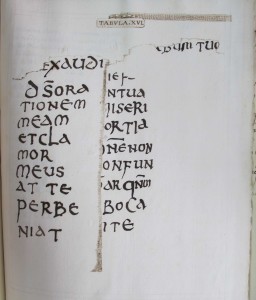 TABVLA.XVI.
EXAUDI
DN̄SORA
TIONEM
MEAM
ETCLA
MOR
MEUS
AT TE
PERBE
NIAT
IE
NTUA
ISERI
ORTIA
DN̄ENON
ONFUN
ARQN̄M
BOCA
ITE